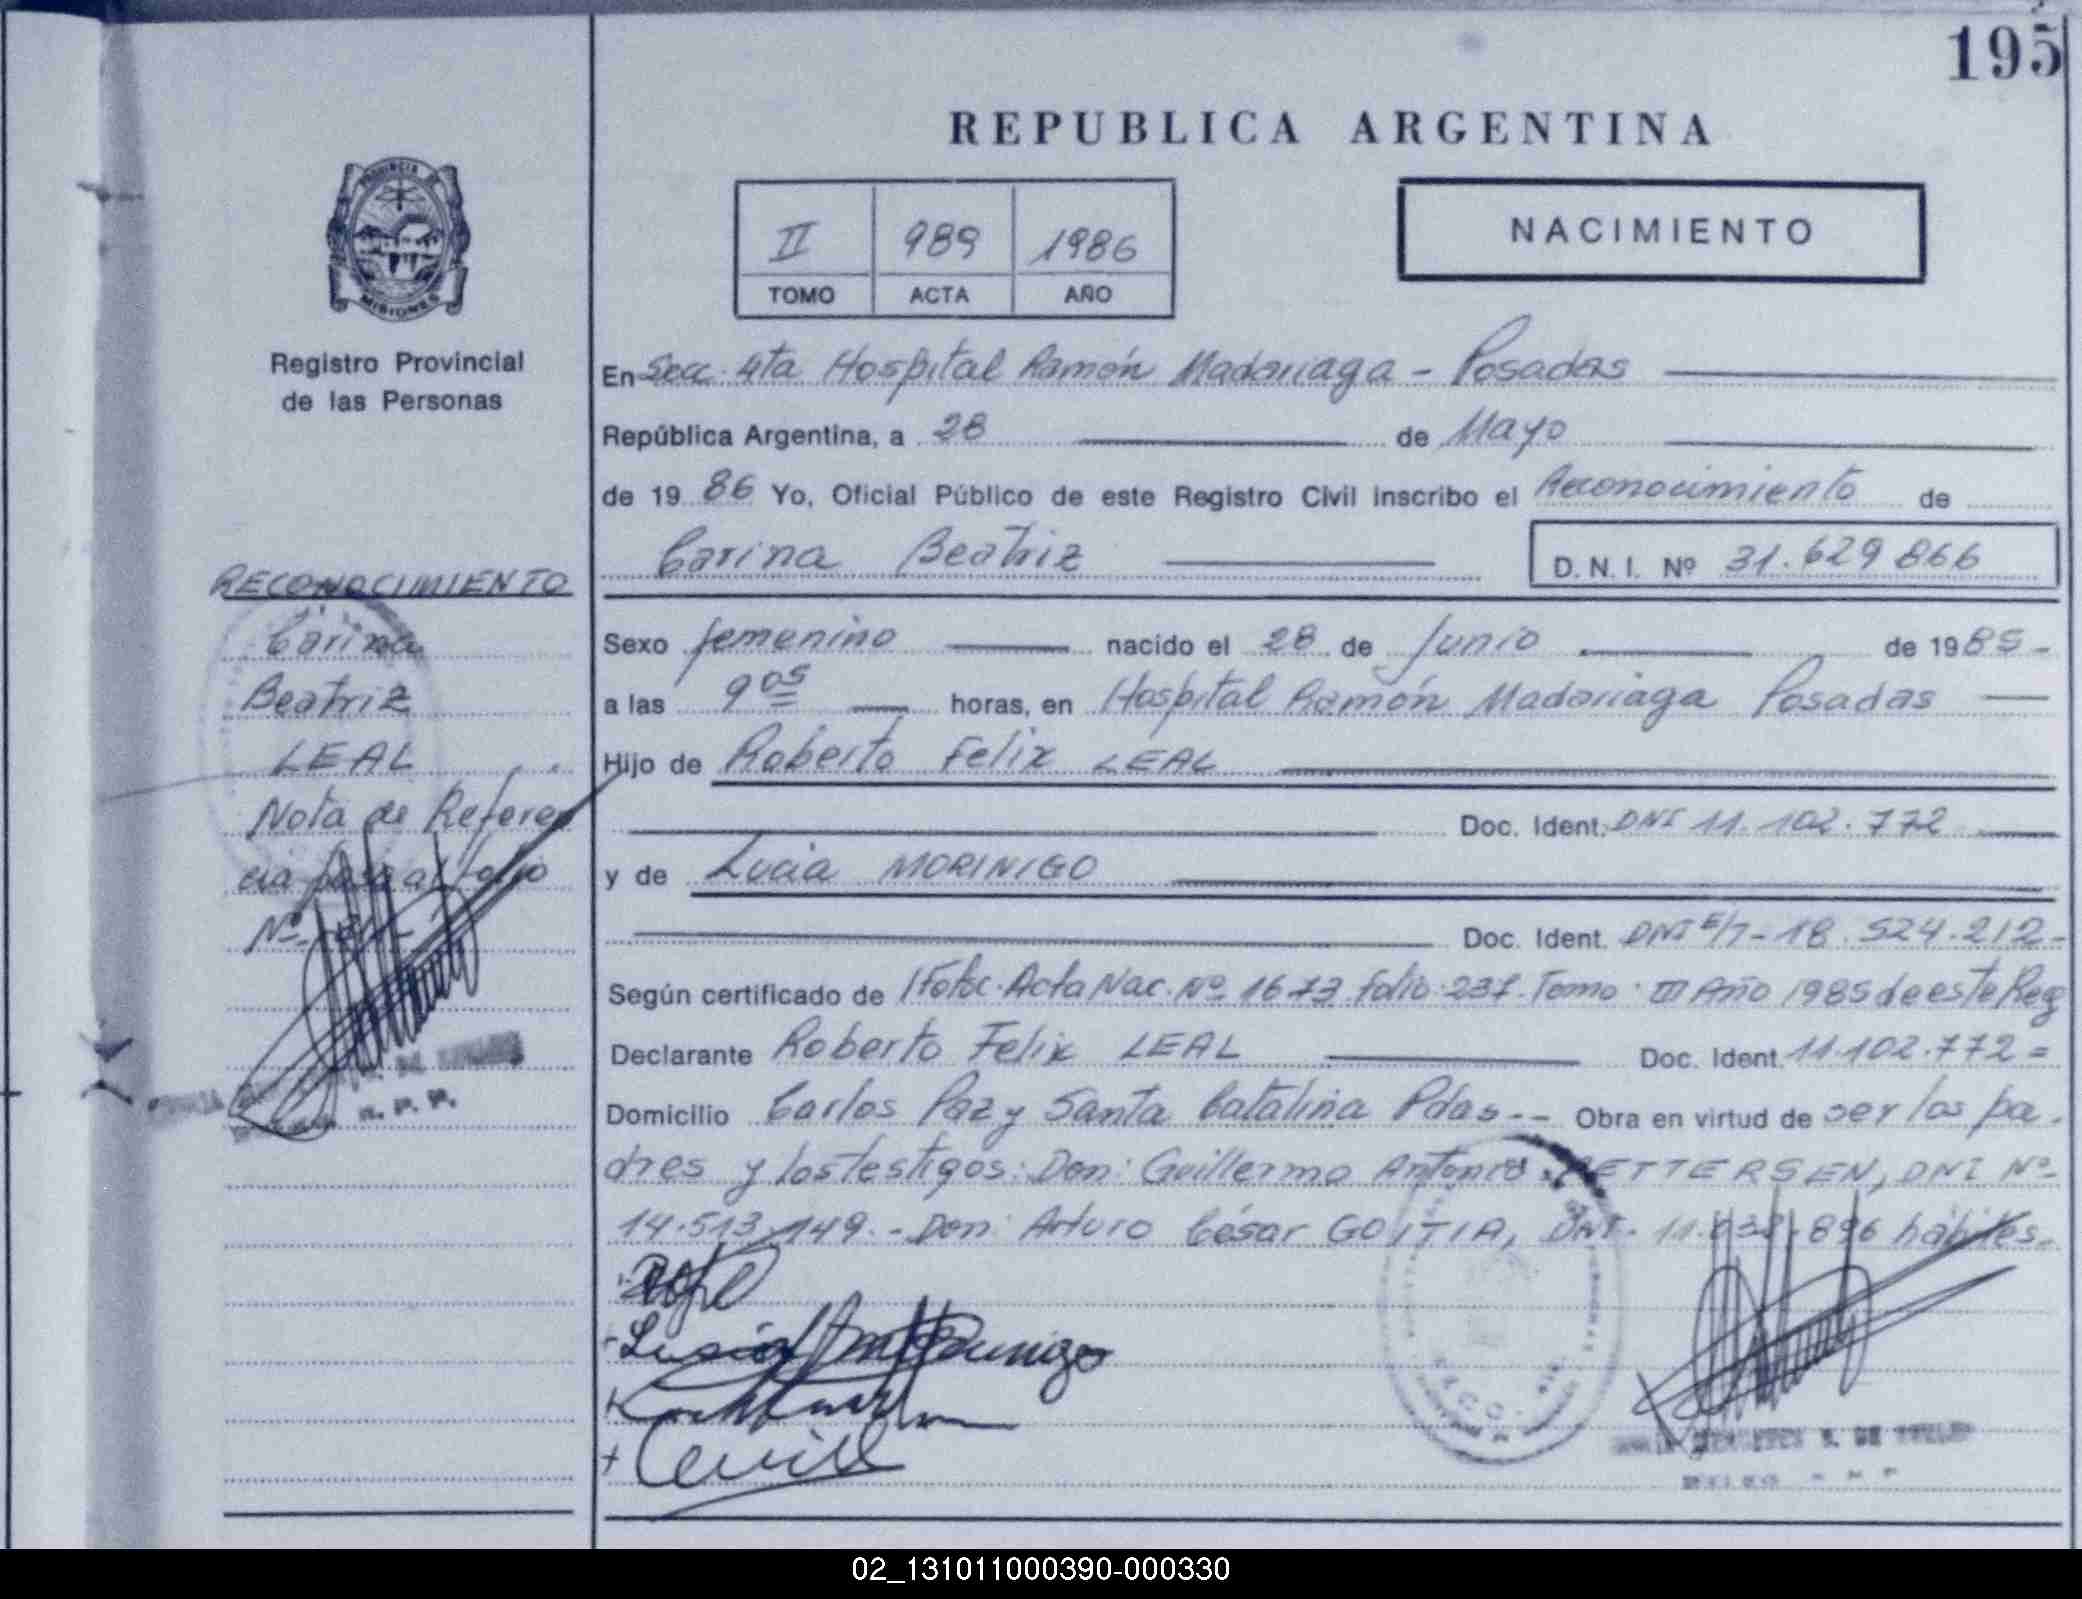 195
REPUBLICA ARGENTINA
PROVINCIA DE
MISIONES
II 989 1986
TOMO ACTA AÑO
NACIMIENTO
Registro Provincial
de las Personas
En Secc. 4ta Hospital Ramón Madariaga - Posadas
República Argentina, a 28 de Mayo
de 1986 Yo, Oficial Público de este Registro Civil inscribo el Reconocimiento de
Carina Beatriz D.N.I. Nº 31.629866
Sexo femenino nacido el 28 de Junio de 1985-
a las 9 05 horas, en Hospital Ramón Madariaga Posadas
Hijo de Roberto Felix LEAL
Doc. Ident. DNI 11.102.772
y de Lucia MORINIGO
Doc. Ident. DNI E/T-18.524.212-
Según certificado de 1 Fotoc. Acta Nac. Nº 1673 folio 237. Tomo III Año 1985 de este Reg
Declarante Roberto Felix LEAL Doc. Ident. 11.102.772=
Domicilio Carlos Paz y Santa Catalina Pdas-- Obra en virtud de ser los pa-
dres y los testigos: Don: Guillermo Antonio DNI Nº
14.513.149.- Don: Arturo César GOITIA, DNI. hábiles.-
RECONOCIMIENTO
Carina
Beatriz
LEAL
Nota de Referen
cia pasa al folio
Nº
R. P. P.
02_131011000390-000330